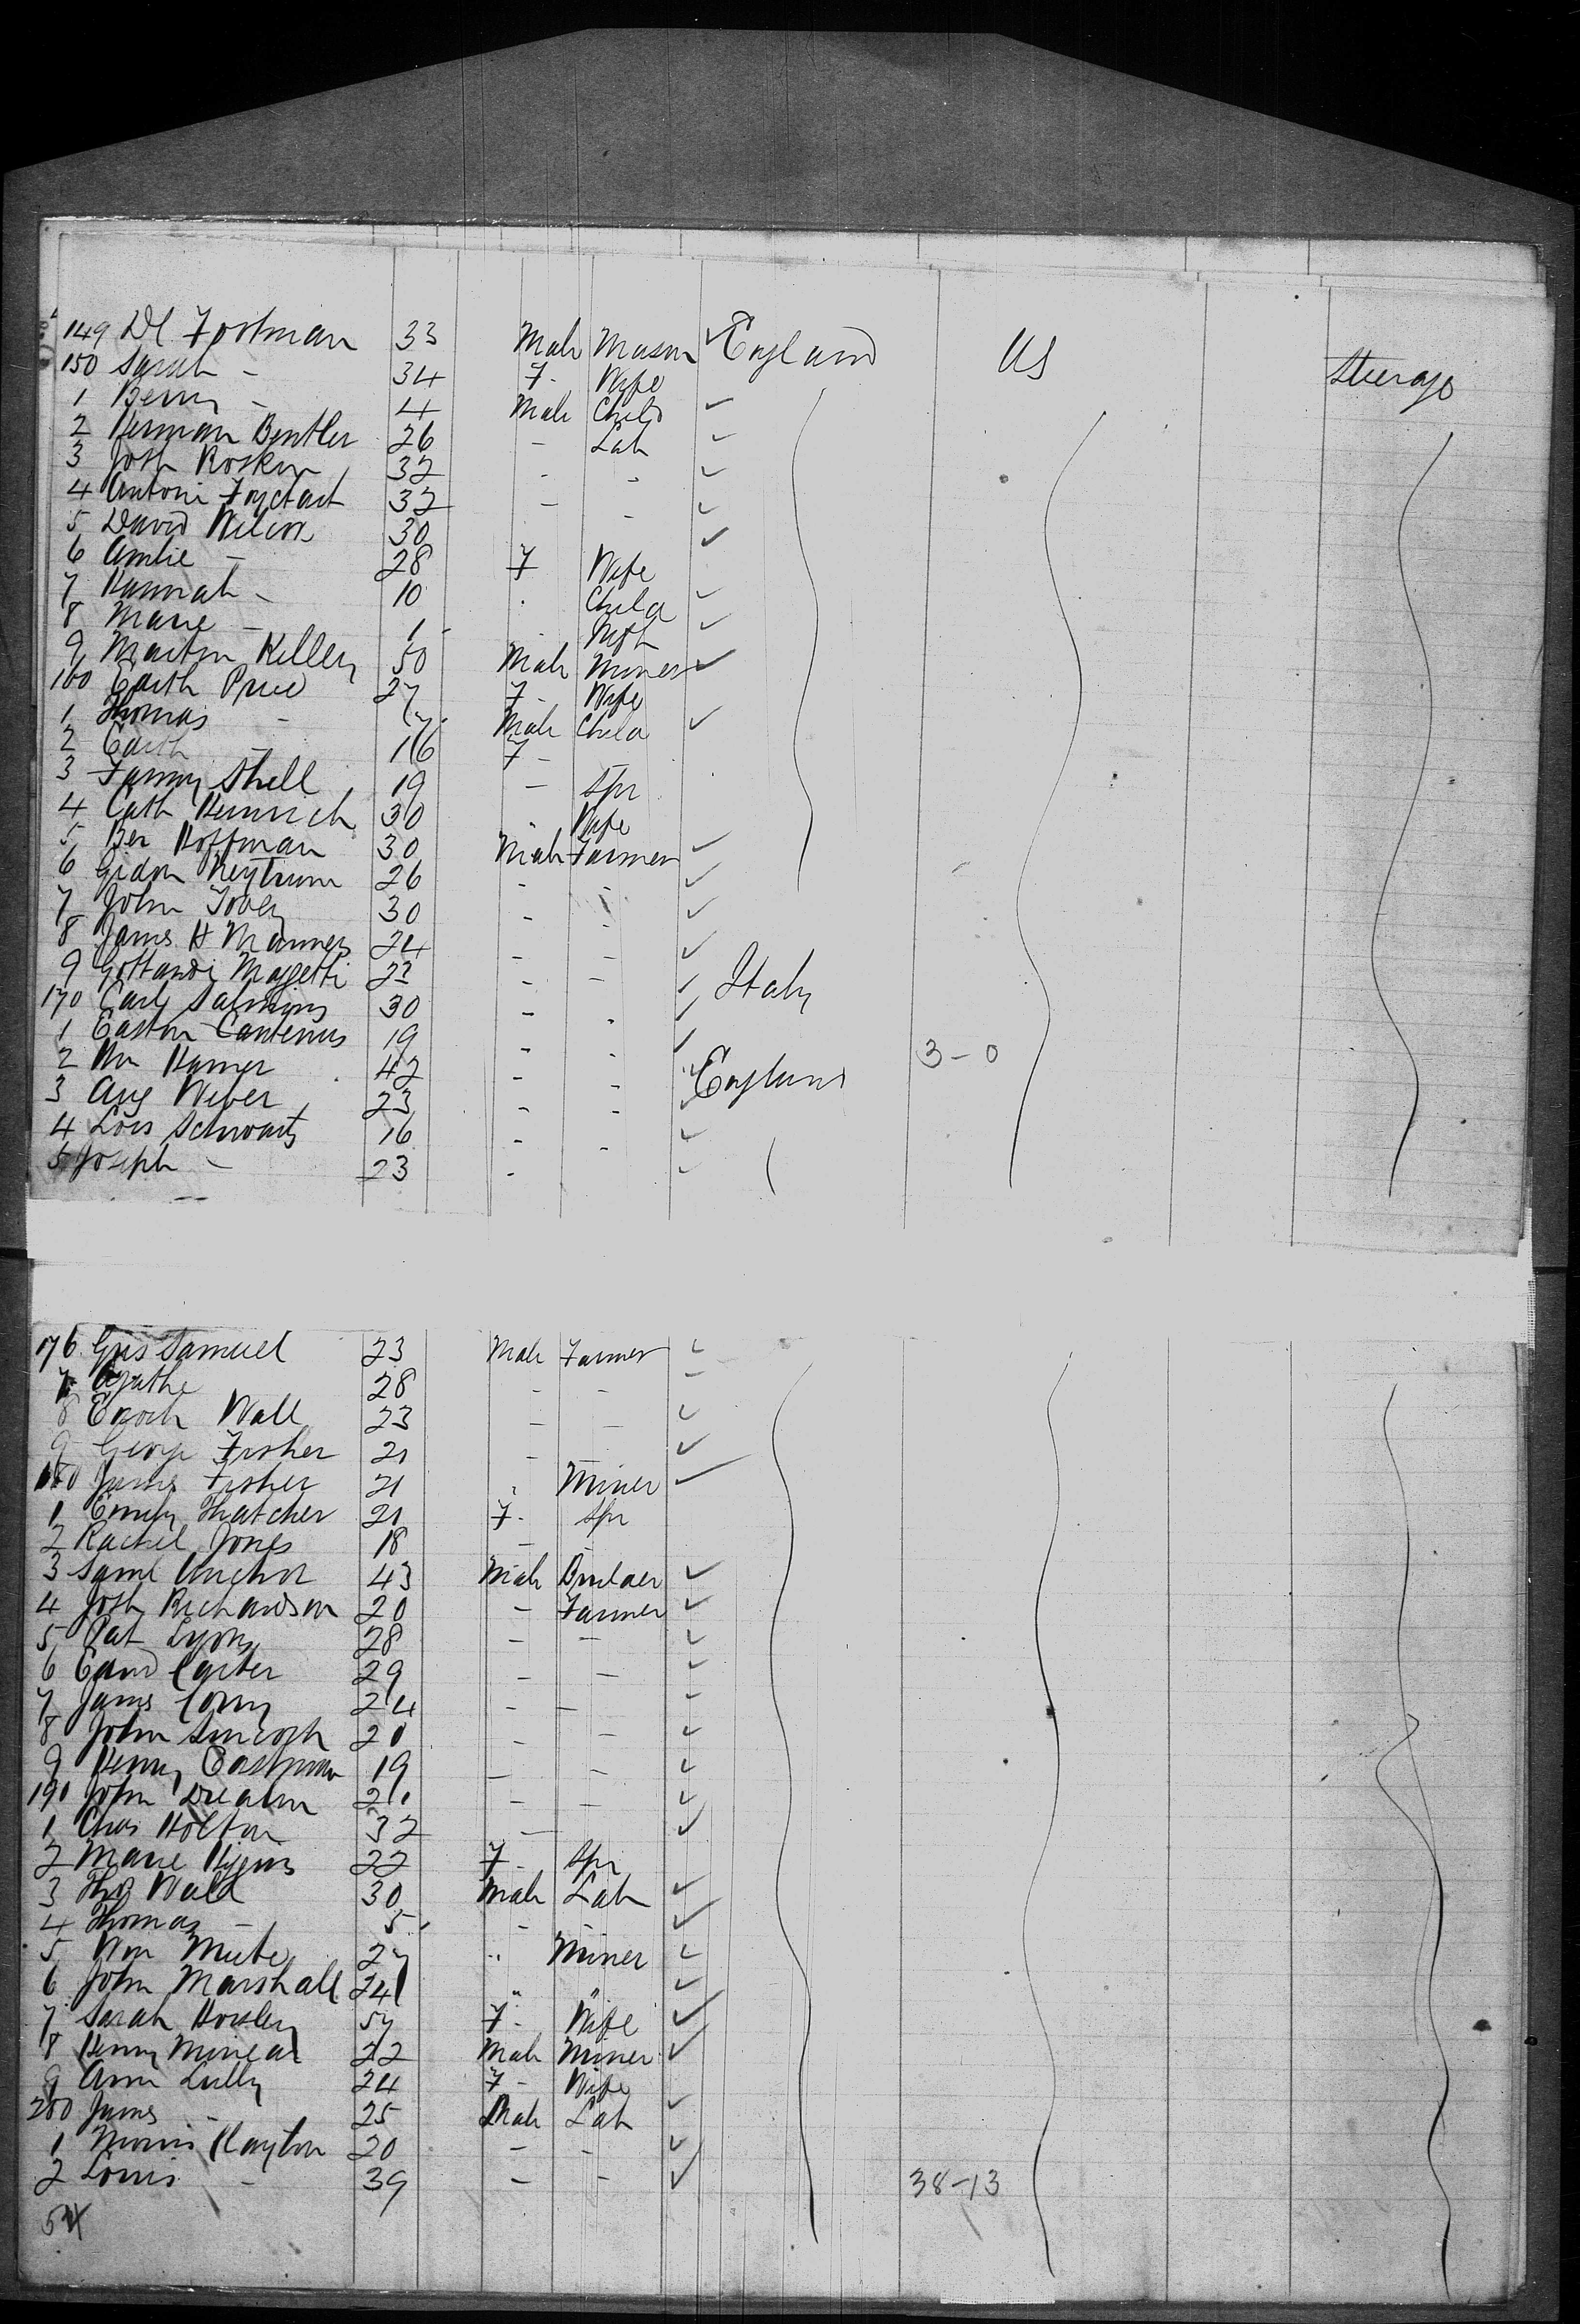 149 Dl Fortman 33 Male Mason ✓ England US Steerage
150 Sarah - 34 F - Wife
1 Benny - 4 Male Child ✓
2 Herman Bentler 26 - Lab ✓
3 Josh Roskin 32 - - ✓
4 Antoni 32 - - ✓
5 David 30 ✓
6 Amlie - 28 F Wife
7 Hannah - 10 Child ✓
8 Marie - 1 - Inft ✓
9 Martin Kelley 50 Male Miner ✓
160 Edith Price 27 F - Wife
1 Thomas - 7 Male Child ✓
2 Edith - 16 F -
3 Fanny Shell 19 - Spr
4 Cath Heinrich 30 - Wife
5 Ben Hoffman 30 Male Farmer ✓
6 Gidon 26 - - ✓
7 John Tovey 30 - - ✓
8 James H Manners 24 - - ✓
9 Gottardi Maggetti 22 - - ✓ Italy
170 Carl 30 - - ✓
1 19 - - ✓
2 Wm Hamer 42 - - ✓ England 3-0
3 Aug Weber 23 - - ✓
4 Lois Schwartz 16 - - ✓
5 Joseph - 23 - ✓
176 Gus Samuel 23 Male Farmer ✓
7 Agathe 28 - -
8 Enoch Wall 23 - - ✓
9 George Fisher 21 - - ✓
180 James Fisher 21 Miner ✓
1 Emily Thatcher 21 F - Spr
2 Rachel Jones 18 - -
3 Saml Anchor 43 Male Builder ✓
4 Josh Richardson 20 - Farmer ✓
5 Pat Lyons 28 - - ✓
6 Edwd Carter 29 - - ✓
7 James Corry 24 - - ✓
8 John 20 - - ✓
9 Henry Eastman 19 - - ✓
190 John 21 - - ✓
1 Chas Holton 32 - ✓
2 Marie 22 F - Spr
3 Thos Wald 30 Male Lab ✓
4 Thomas - 5 - - ✓
5 Wm 27 " Miner ✓
6 John Marshall 24 " " ✓
7 Sarah Horsley 57 F - Wife ✓
8 Henry Minear 22 Male Miner ✓
9 Ann Lilly 24 F - Wife
200 James - 25 Male Lab ✓
1 Morris Clayton 20 - - ✓
2 Louis - 39 - - ✓ 38-13